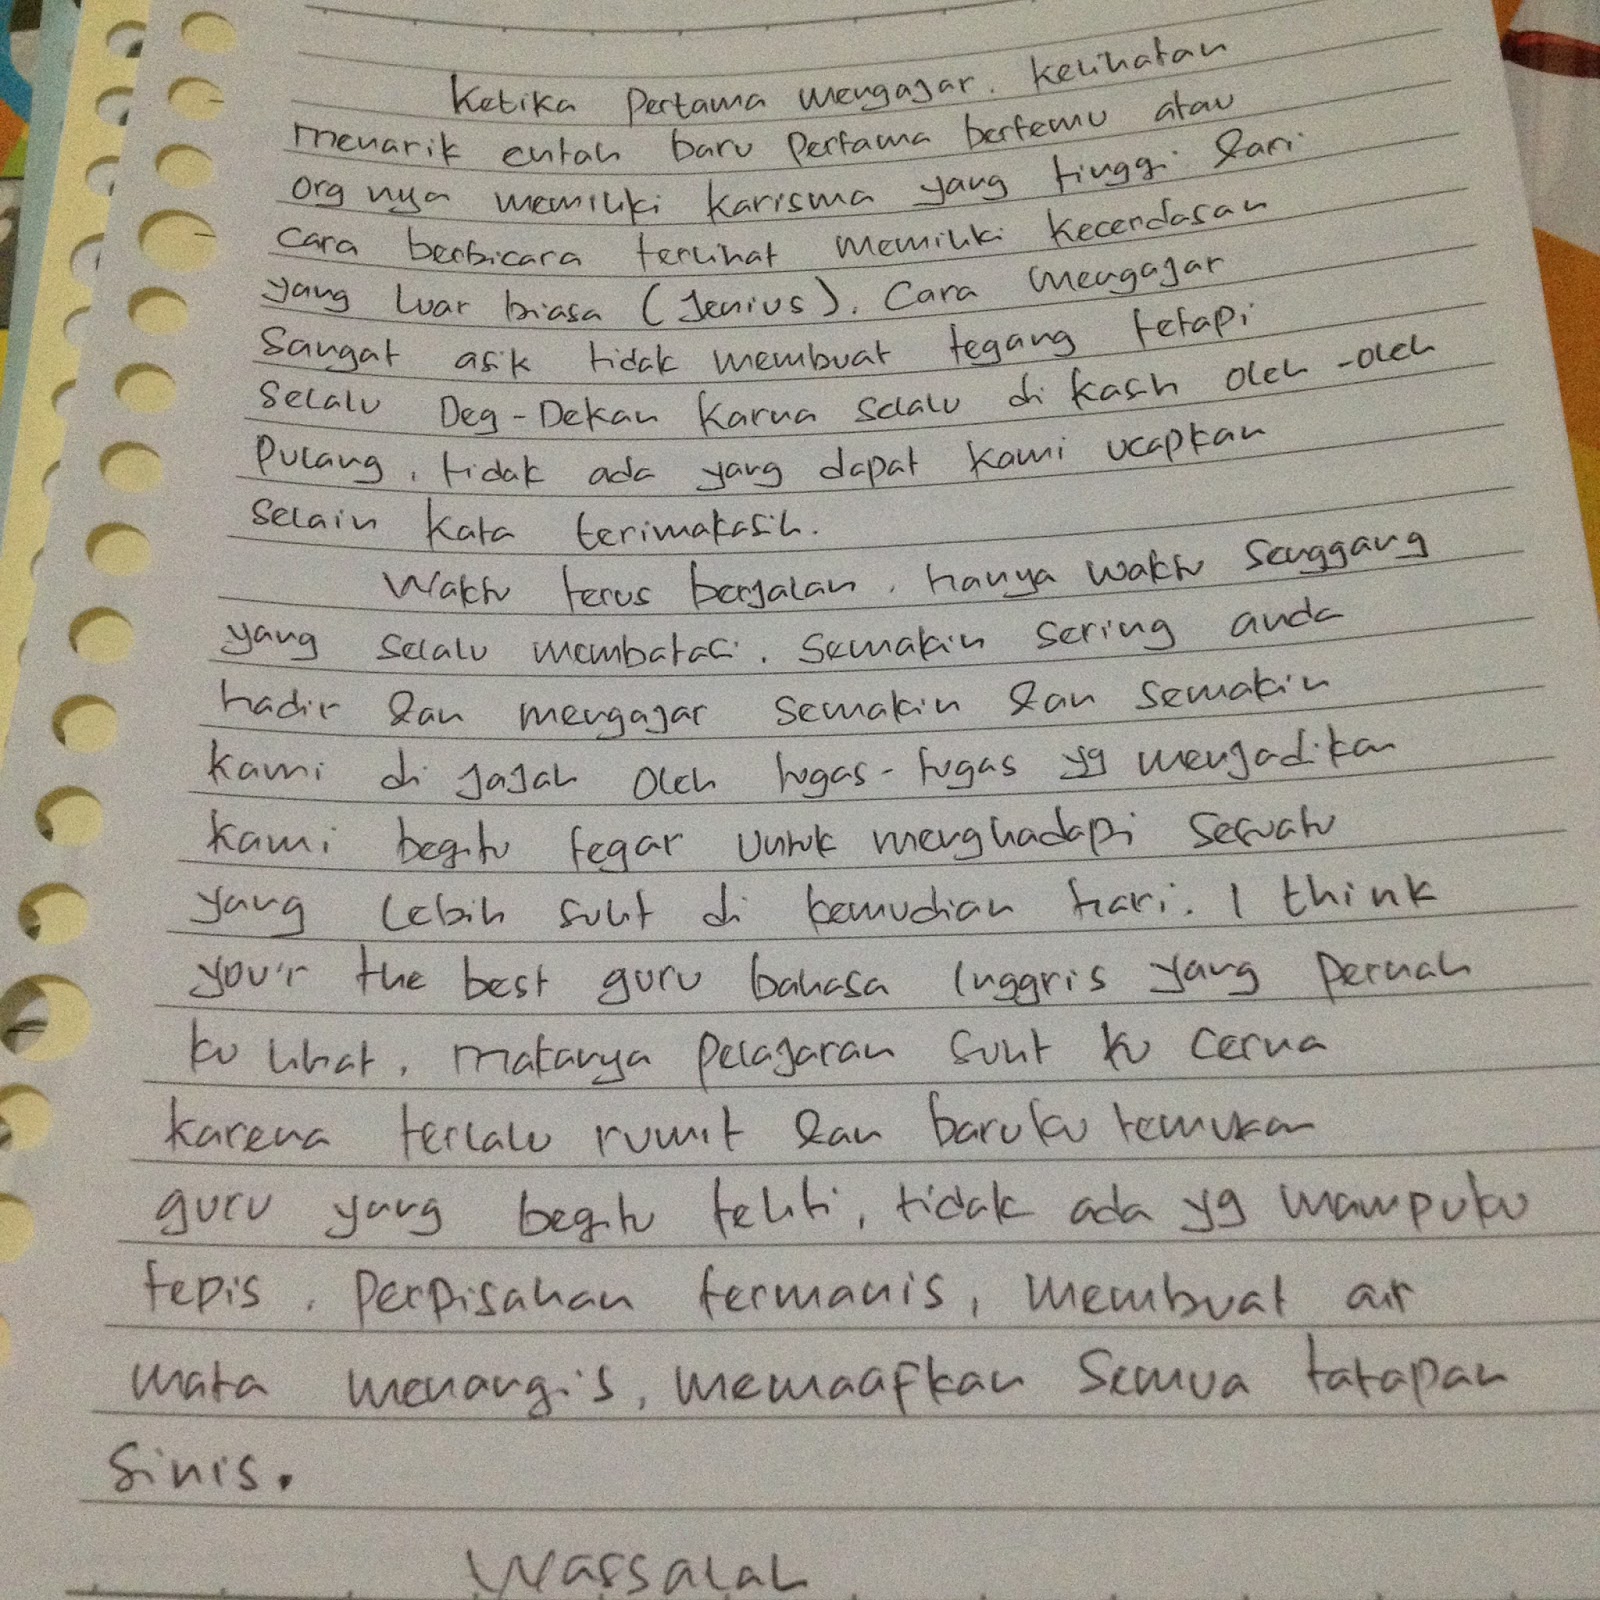 Ketika Pertama mengajar. Kelihatan
menarik entah baru Pertama bertemu atau
org nya memiliki karisma yang tinggi. Dari
cara berbicara terlihat memiliki kecerdasan
yang luar biasa (Jenius). Cara mengajar
Sangat asik tidak membuat tegang tetapi
Selalu Deg-Dekan karna selalu di kasih oleh-oleh
Pulang, tidak ada yang dapat kami ucapkan
Selain kata terimakasih.
Waktu terus berjalan, hanya waktu senggang
yang selalu membatasi. Semakin sering anda
hadir dan mengajar semakin dan semakin
kami di jajah oleh tugas-tugas yg menjadikan
kami begitu tegar untuk menghadapi sesuatu
yang lebih sulit di kemudian hari. I think
you'r the best guru bahasa Inggris yang pernah
ku lihat, makanya pelajaran sulit ku cerna
karena terlalu rumit dan baru ku temukan
guru yang begitu teliti, tidak ada yg mampu ku
tepis. Perpisahan termanis, membuat air
mata menangis, memaafkan semua tatapan
sinis.
Wassalah